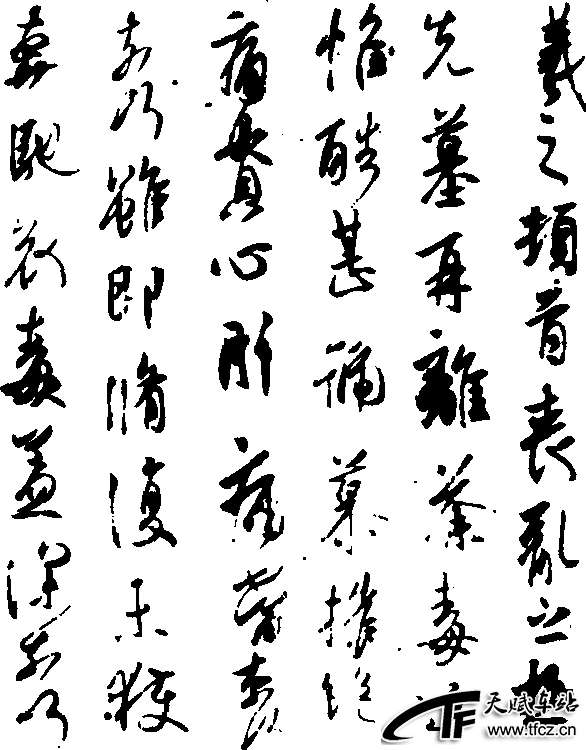 羲之頓首喪亂之極
先墓再離荼毒追
惟酷甚號慕摧絕
痛貫心肝痛當奈何
奈何雖即脩復未獲
奔馳哀毒益深奈何
天赋车站
www.tfcz.cn